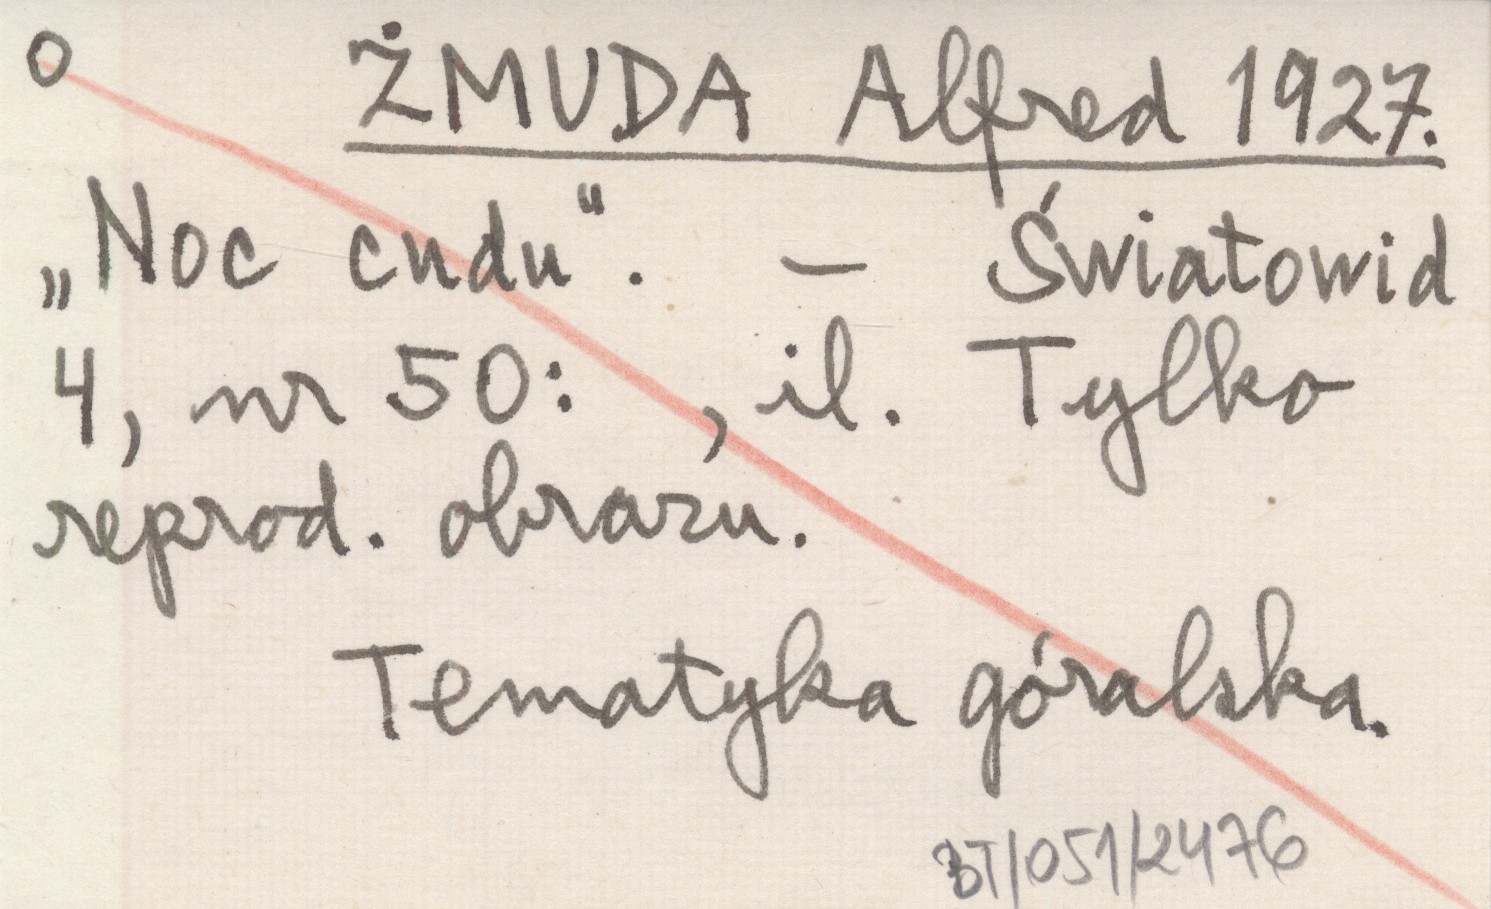 o ŻMUDA Alfred 1927.
„Noc cudu". – Światowid
4, nr 50: , il. Tylko
reprod. obrazu.
Tematyka góralska.
BT/051/2476